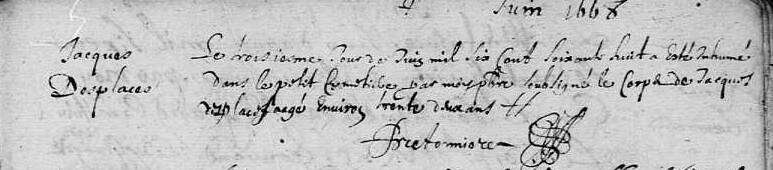 Juin 1668
Jacques
Desplaces
Le troisiesme Jour de Juin mil six cent soixante huit a Esté Inhumé
dans le petit Cemetiere par moy pbre soubsigné le Corps de Jacques
Desplaces aagé Environ trente deux ans